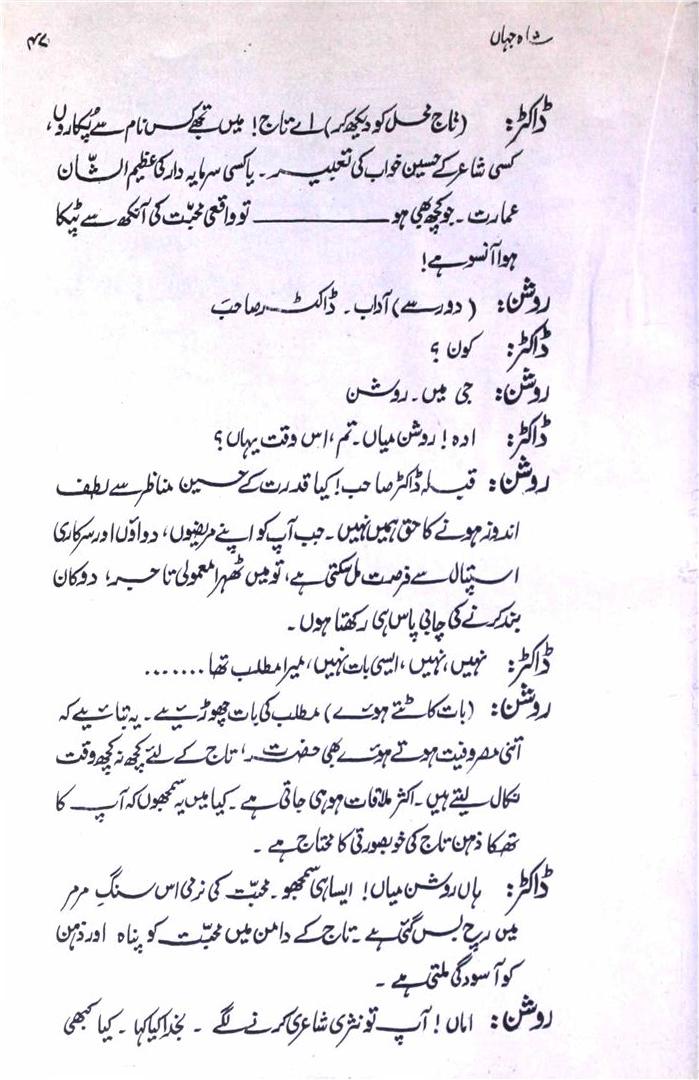 شاہ جہاں ۴۷
ڈاکٹر: (تاج محل کو دیکھ کر) اے تاج! میں تجھے کس نام سے پکاروں،
کسی شاعر کے حسین خواب کی تعبیر۔ یا کسی سرمایہ دار کی عظیم الشّان
عمارت۔ جو کچھ بھی ہو ـــــــــ تو واقعی محبّت کی آنکھ سے ٹپکا
ہوا آنسو ہے!
روشن: (دور سے) آداب۔ ڈاکٹر صاحب
ڈاکٹر: کون ؟
روشن: جی میں۔ روشن
ڈاکٹر: اوہ! روشن میاں۔ تم، اس وقت یہاں؟
روشن: قبلہ ڈاکٹر صاحب! کیا قدرت کے حسین مناظر سے لطف
اندوز ہونے کا حق ہمیں نہیں۔ جب آپ کو اپنے مریضوں، دواؤں اور سرکاری
اسپتال سے فرصت مل سکتی ہے، تو میں ٹھہرا معمولی تاجر، دوکان
بند کرنے کی چابی پاس ہی رکھتا ہوں۔
ڈاکٹر: نہیں، نہیں، ایسی بات نہیں، میرا مطلب تھا .......
روشن: (بات کاٹتے ہوئے) مطلب کی بات چھوڑیے۔ یہ بتایئے کہ
اتنی مصروفیت ہوتے ہوئے بھی حضرت، تاج کے لئے کچھ نہ کچھ وقت
نکال لیتے ہیں۔ اکثر ملاقات ہو ہی جاتی ہے۔ کیا میں یہ سمجھوں کہ آپ کا
تھکا ذہن تاج کی خوبصورتی کا محتاج ہے۔
ڈاکٹر: ہاں روشن میاں! ایسا ہی سمجھو۔ محبّت کی نرمی اس سنگِ مرمر
میں رچ بس گئی ہے۔ تاج کے دامن میں محبّت کو پناہ اور ذہن
کو آسودگی ملتی ہے۔
روشن: اماں! آپ تو نثری شاعری کرنے لگے۔ بخدا کیا کہا۔ کیا کبھی